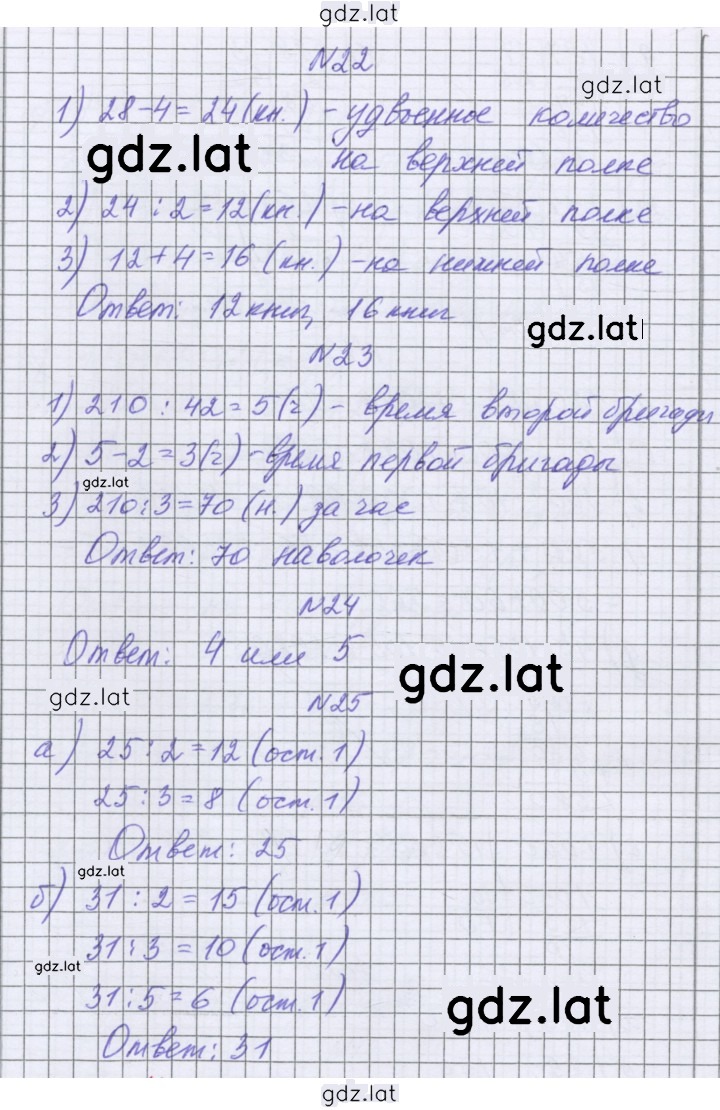 gdz.lat
№22
gdz.lat
1) 28-4=24(кн.) - удвоенное количество
gdz.lat
на верхней полке
2) 24:2=12(кн.) - на верхней полке
3) 12+4=16(кн.) - на нижней полке
Ответ: 12 книг, 16 книг
gdz.lat
№23
1) 210:42=5(ч) - время второй бригады
2) 5-2=3(ч) - время первой бригады
gdz.lat
3) 210:3=70(н.) за час
Ответ: 70 наволочек
№24
Ответ: 4 или 5
gdz.lat
gdz.lat
№25
а) 25:2=12 (ост.1)
25:3=8 (ост.1)
Ответ: 25
gdz.lat
б) 31:2=15 (ост.1)
31:3=10 (ост.1)
gdz.lat
31:5=6 (ост.1)
gdz.lat
Ответ: 31
gdz.lat